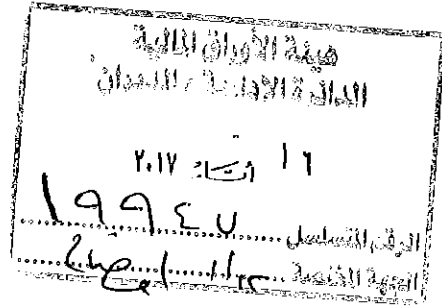 هيئة الأوراق المالية
الدائرة الإدارية / الديوان
١٦ آب ٢٠١٧
الرقم المتسلسل ١٩٩٤٧
الجهة المختصة